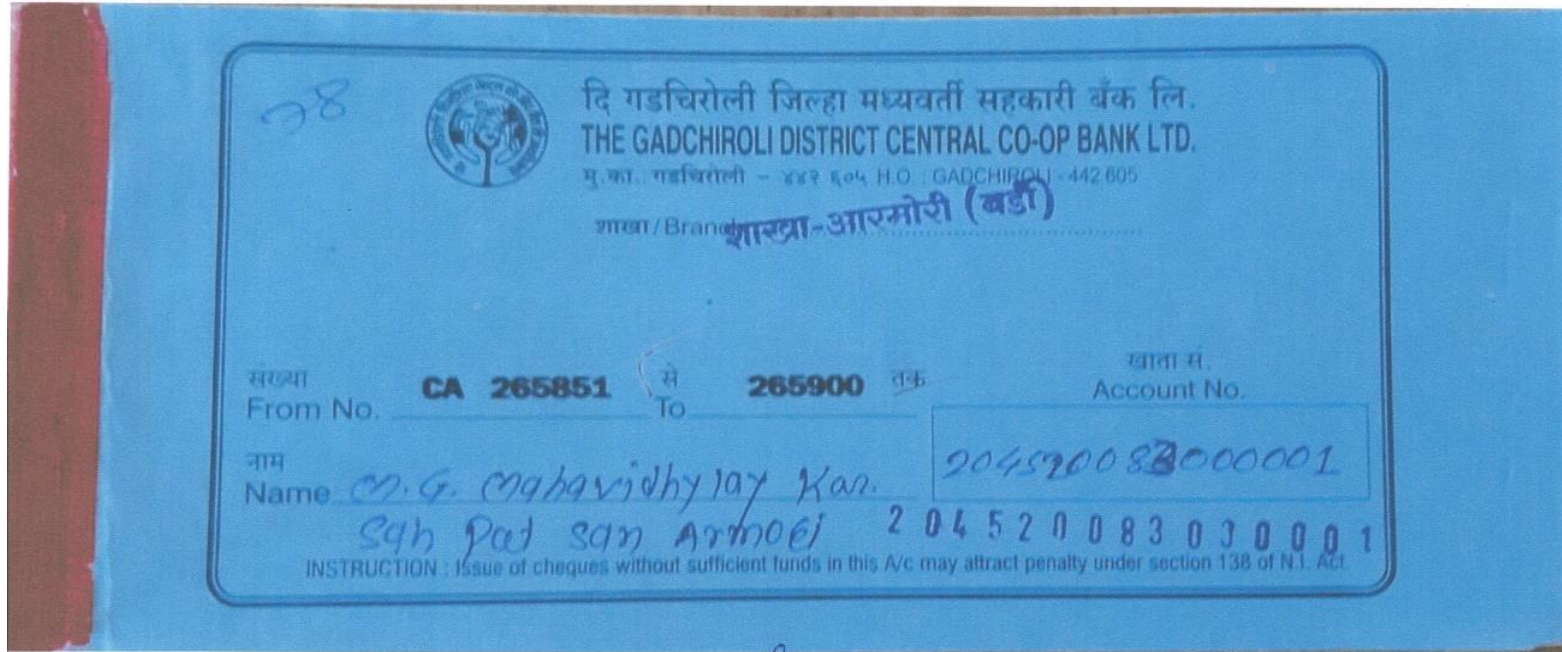 28
दि गडचिरोली जिल्हा मध्यवर्ती सहकारी बँक लि.
THE GADCHIROLI DISTRICT CENTRAL CO-OP BANK LTD.
मु.का. गडचिरोली - ४४२ ६०५ H.O. : GADCHIROLI - 442 605
शाखा/Branch शाखा-आरमोरी (बर्डी)
संख्या From No. CA 265851 से To 265900 तक
खाता सं. Account No.
204520083000001
नाम Name M.G. Mahavidhylay Kar.
Sah Pat San Armori
204520083000001
INSTRUCTION : Issue of cheques without sufficient funds in this A/c may attract penalty under section 138 of N.I. Act.